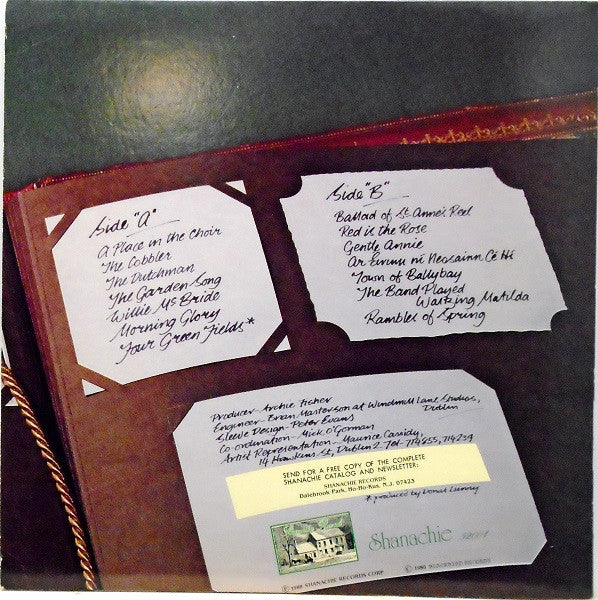 Side "A"
A Place in the Choir
The Cobbler
The Dutchman
The Garden Song
Willie McBride
Morning Glory
Four Green Fields*
Side "B"
Ballad of St Anne's Reel
Red is the Rose
Gentle Annie
Ar Éirinn ní Neosainn Cé Hí
Town of Ballybay
The Band Played
Waltzing Matilda
Rambles of Spring
Producer - Archie Fisher
Engineer - Brian Masterson at Windmill Lane Studios,
Dublin
Sleeve Design - Peter Evans
Co-ordination - Mick O'Gorman
Artist Representation - Maurice Cassidy,
14 Hawkins St, Dublin 2 Tel - 714855, 714234
SEND FOR A FREE COPY OF THE COMPLETE
SHANACHIE CATALOG AND NEWSLETTER:
SHANACHIE RECORDS
Dalebrook Park, Ho-Ho-Kus, N.J. 07423
* produced by Donal Lunny
Shanachie
© 1988 SHANACHIE RECORDS CORP
℗ 1980 RECORDS